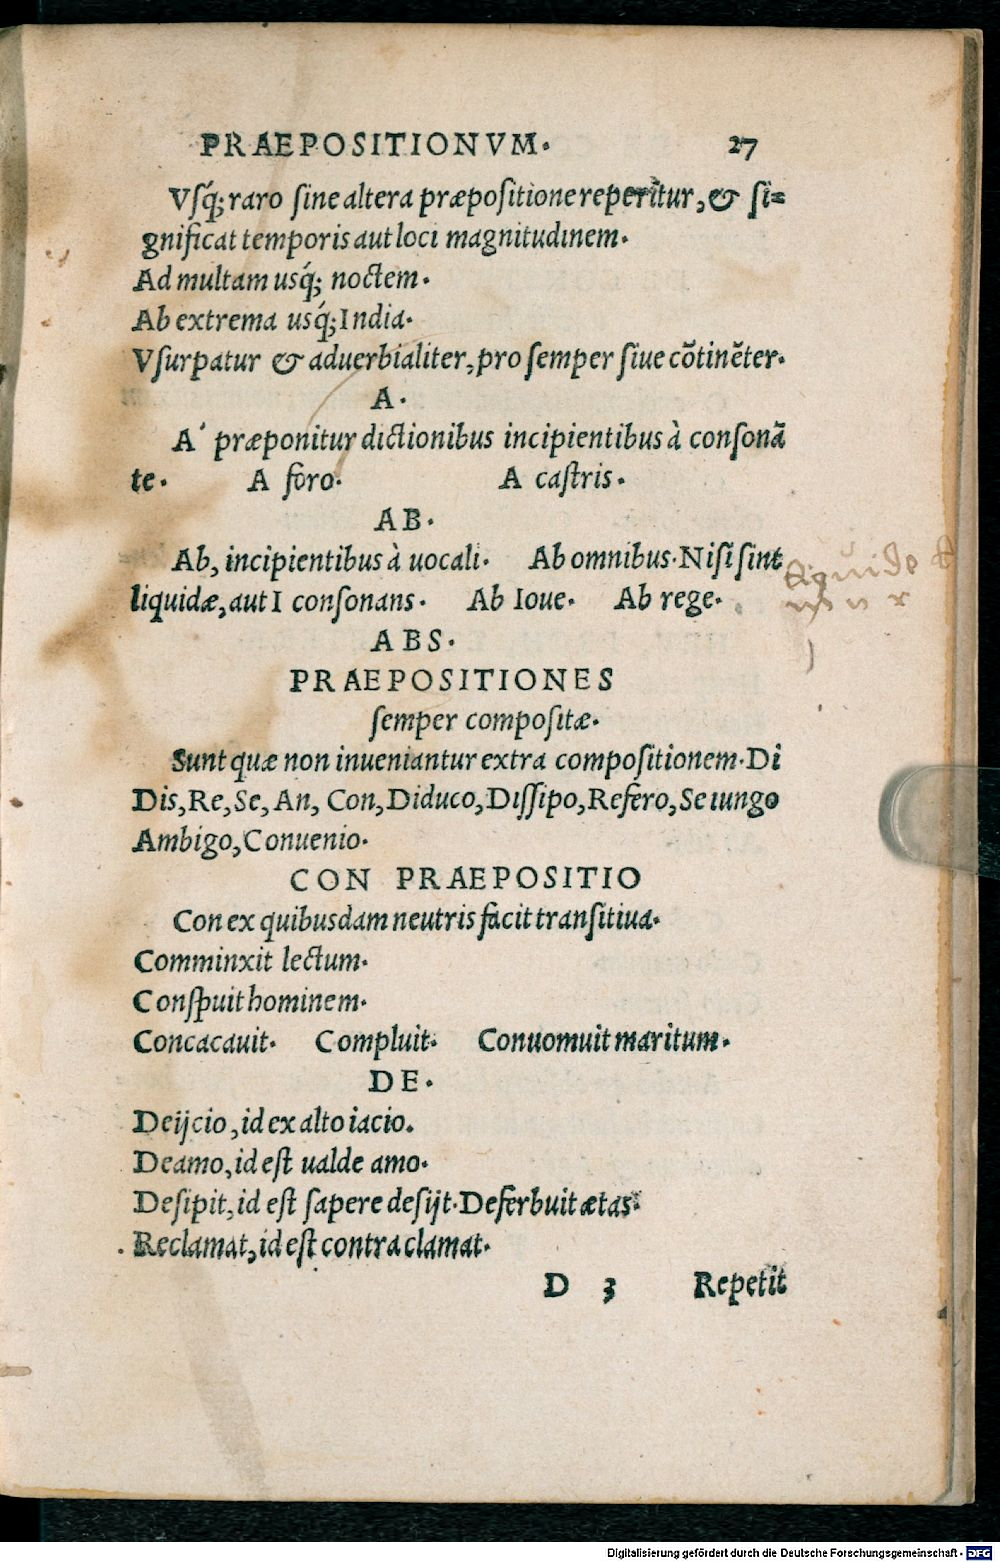 PRAEPOSITIONVM. 27
Vsq́; raro sine altera præpositione reperitur, & si=
gnificat temporis aut loci magnitudinem.
Ad multam usq́; noctem.
Ab extrema usq́; India.
Vsurpatur & aduerbialiter, pro semper siue cōtinēter.
A.
A' præponitur dictionibus incipientibus à consonā
te. A foro. A castris.
AB.
Ab, incipientibus à uocali. Ab omnibus. Nisi sint
liquidæ, aut I consonans. Ab Ioue. Ab rege.
ABS.
PRAEPOSITIONES
semper compositæ.
Sunt quæ non inueniantur extra compositionem. Di
Dis, Re, Se, An, Con, Diduco, Dissipo, Refero, Seiungo
Ambigo, Conuenio.
CON PRAEPOSITIO
Con ex quibusdam neutris facit transitiua.
Comminxit lectum.
Conspuit hominem.
Concacauit. Compluit. Conuomuit maritum.
DE.
Deijcio, id ex alto iacio.
Deamo, id est ualde amo.
Desipit, id est sapere desijt. Deferbuit ætas.
Reclamat, id est contra clamat.
D 3 Repetit
Digitalisierung gefördert durch die Deutsche Forschungsgemeinschaft - DFG